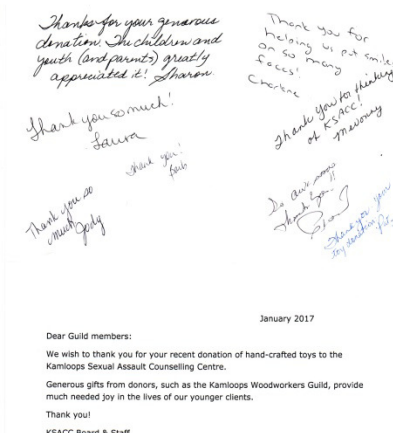 Thanks for your generous
donation. The children and
youth (and parents) greatly
appreciated it! Sharon.
Thank you for
helping us put smiles
on so many
faces!
Charlene
Thank you so much!
Laura
Thank you for thinking
of KSACC!
Thank you!
Barb
Thank you so
much Jody
Thank you!!
Thank you for your
toy donation
January 2017
Dear Guild members:
We wish to thank you for your recent donation of hand-crafted toys to the
Kamloops Sexual Assault Counselling Centre.
Generous gifts from donors, such as the Kamloops Woodworkers Guild, provide
much needed joy in the lives of our younger clients.
Thank you!
KSACC Board & Staff